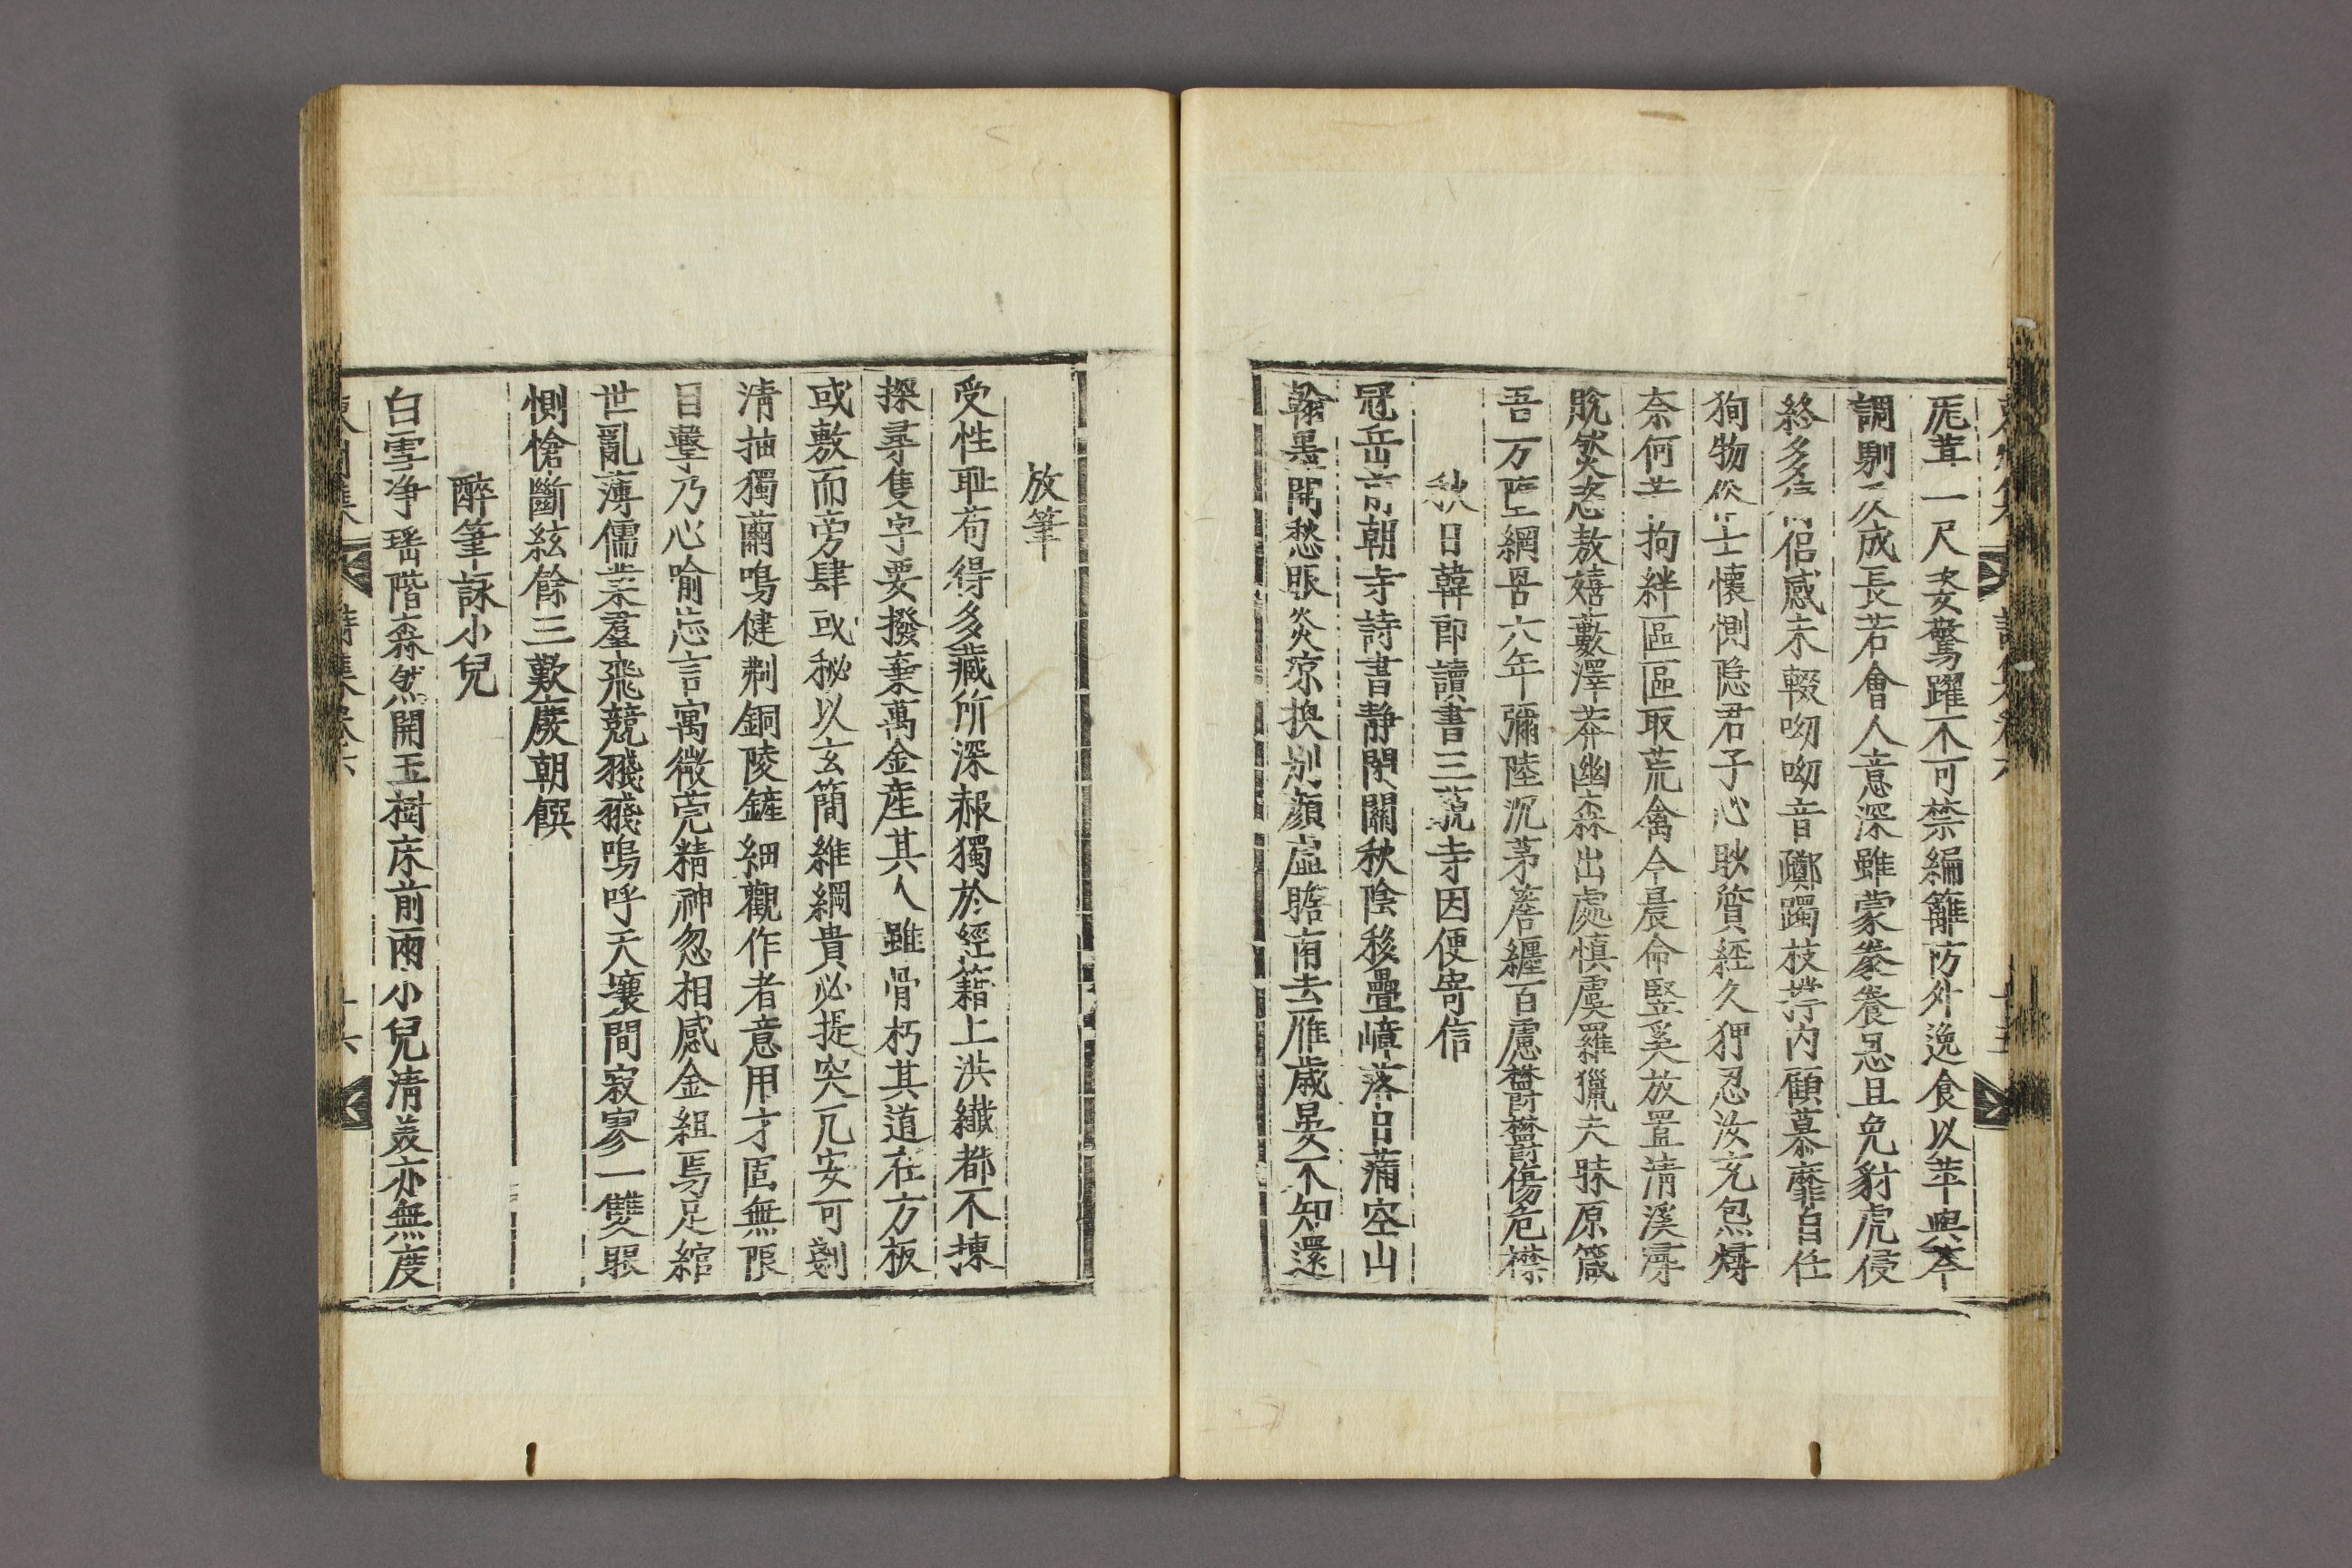 尨茸一尺姿驚躍不可禁編籬防外逸食以苹與芩
調馴久成長若會人意深雖蒙豢養恩且免豺虎侵
終多侶感未輟呦呦音躑躅枝撐內顧慕靡自任
狥物俗士懷惻隐君子心耿賚經久狎忍汝充炰燖
奈何苦拘絆區區取荒禽今晨命竪奚放置清溪潯
脫然恣敖嬉藪澤莽幽森出處慎虞羅獵夫昧原箴
吾万陷網罟六年彌陸沉茅簷纏百慮欝欝傷危襟
秋日韓郎讀書三藐寺因便寄信
冠岳前朝寺詩書靜閉關秋陰移疊嶂落日蒲空山
翰墨開愁眼炎凉換別顏虛瞻南去雁歲晏不知還
放筆
受性耻苟得多藏所深赧獨於經籍上洪纖都不揀
探尋隻字要撥棄萬金產其人雖骨朽其道在方板
或敷而旁肆或秘以玄簡維綱貴必提突兀安可剗
淸抽獨繭鳴健剌銅陵鏟細觀作者意用才固無限
目擊乃心喻忘言寓微莞精神忽相感金組焉足綰
世亂薄儒業羣飛競翐翐嗚呼天壤間寂寥一雙眼
惻愴斷絃餘三歎廢朝饌
醉筆詠小兒
白雪净瑶階森然開玉樹床前兩小兒淸羙亦無度
東州集 詩集卷六 十六